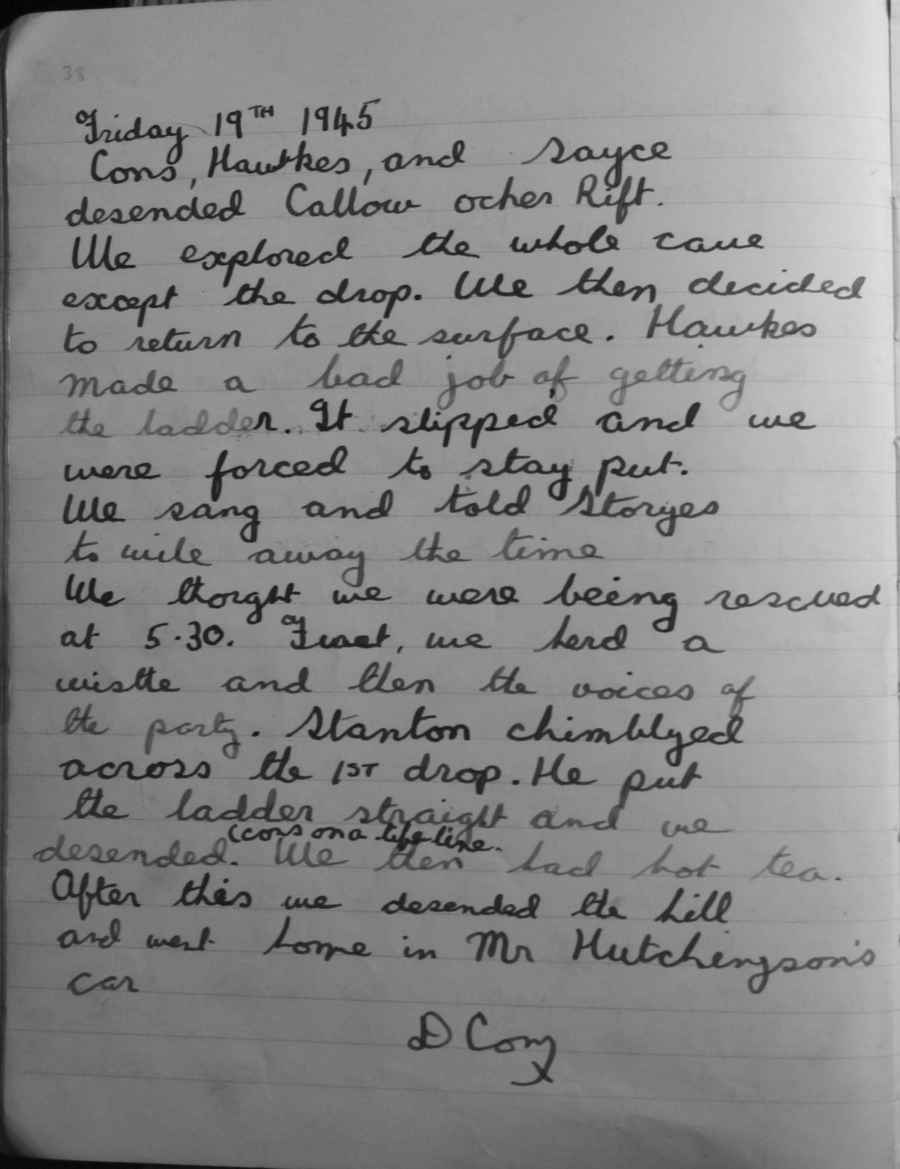 38
Friday 19TH 1945
Cons, Hawkes, and Sayce
desended Callow ocher Rift.
We explored the whole cave
except the drop. We then decided
to return to the surface. Hawkes
made a bad job of getting
the ladder. It slipped and we
were forced to stay put.
We sang and told Storyes
to wile away the time
We thorght we were being rescued
at 5.30. we herd a
wistle and then the voices of
the party. Stanton chimblyed
across the 1ST drop. He put
the ladder straight and we
(cons on a life line.
desended. We then had hot tea.
After this we desended the hill
and went home in Mr Hutchengson's
car
D Cons